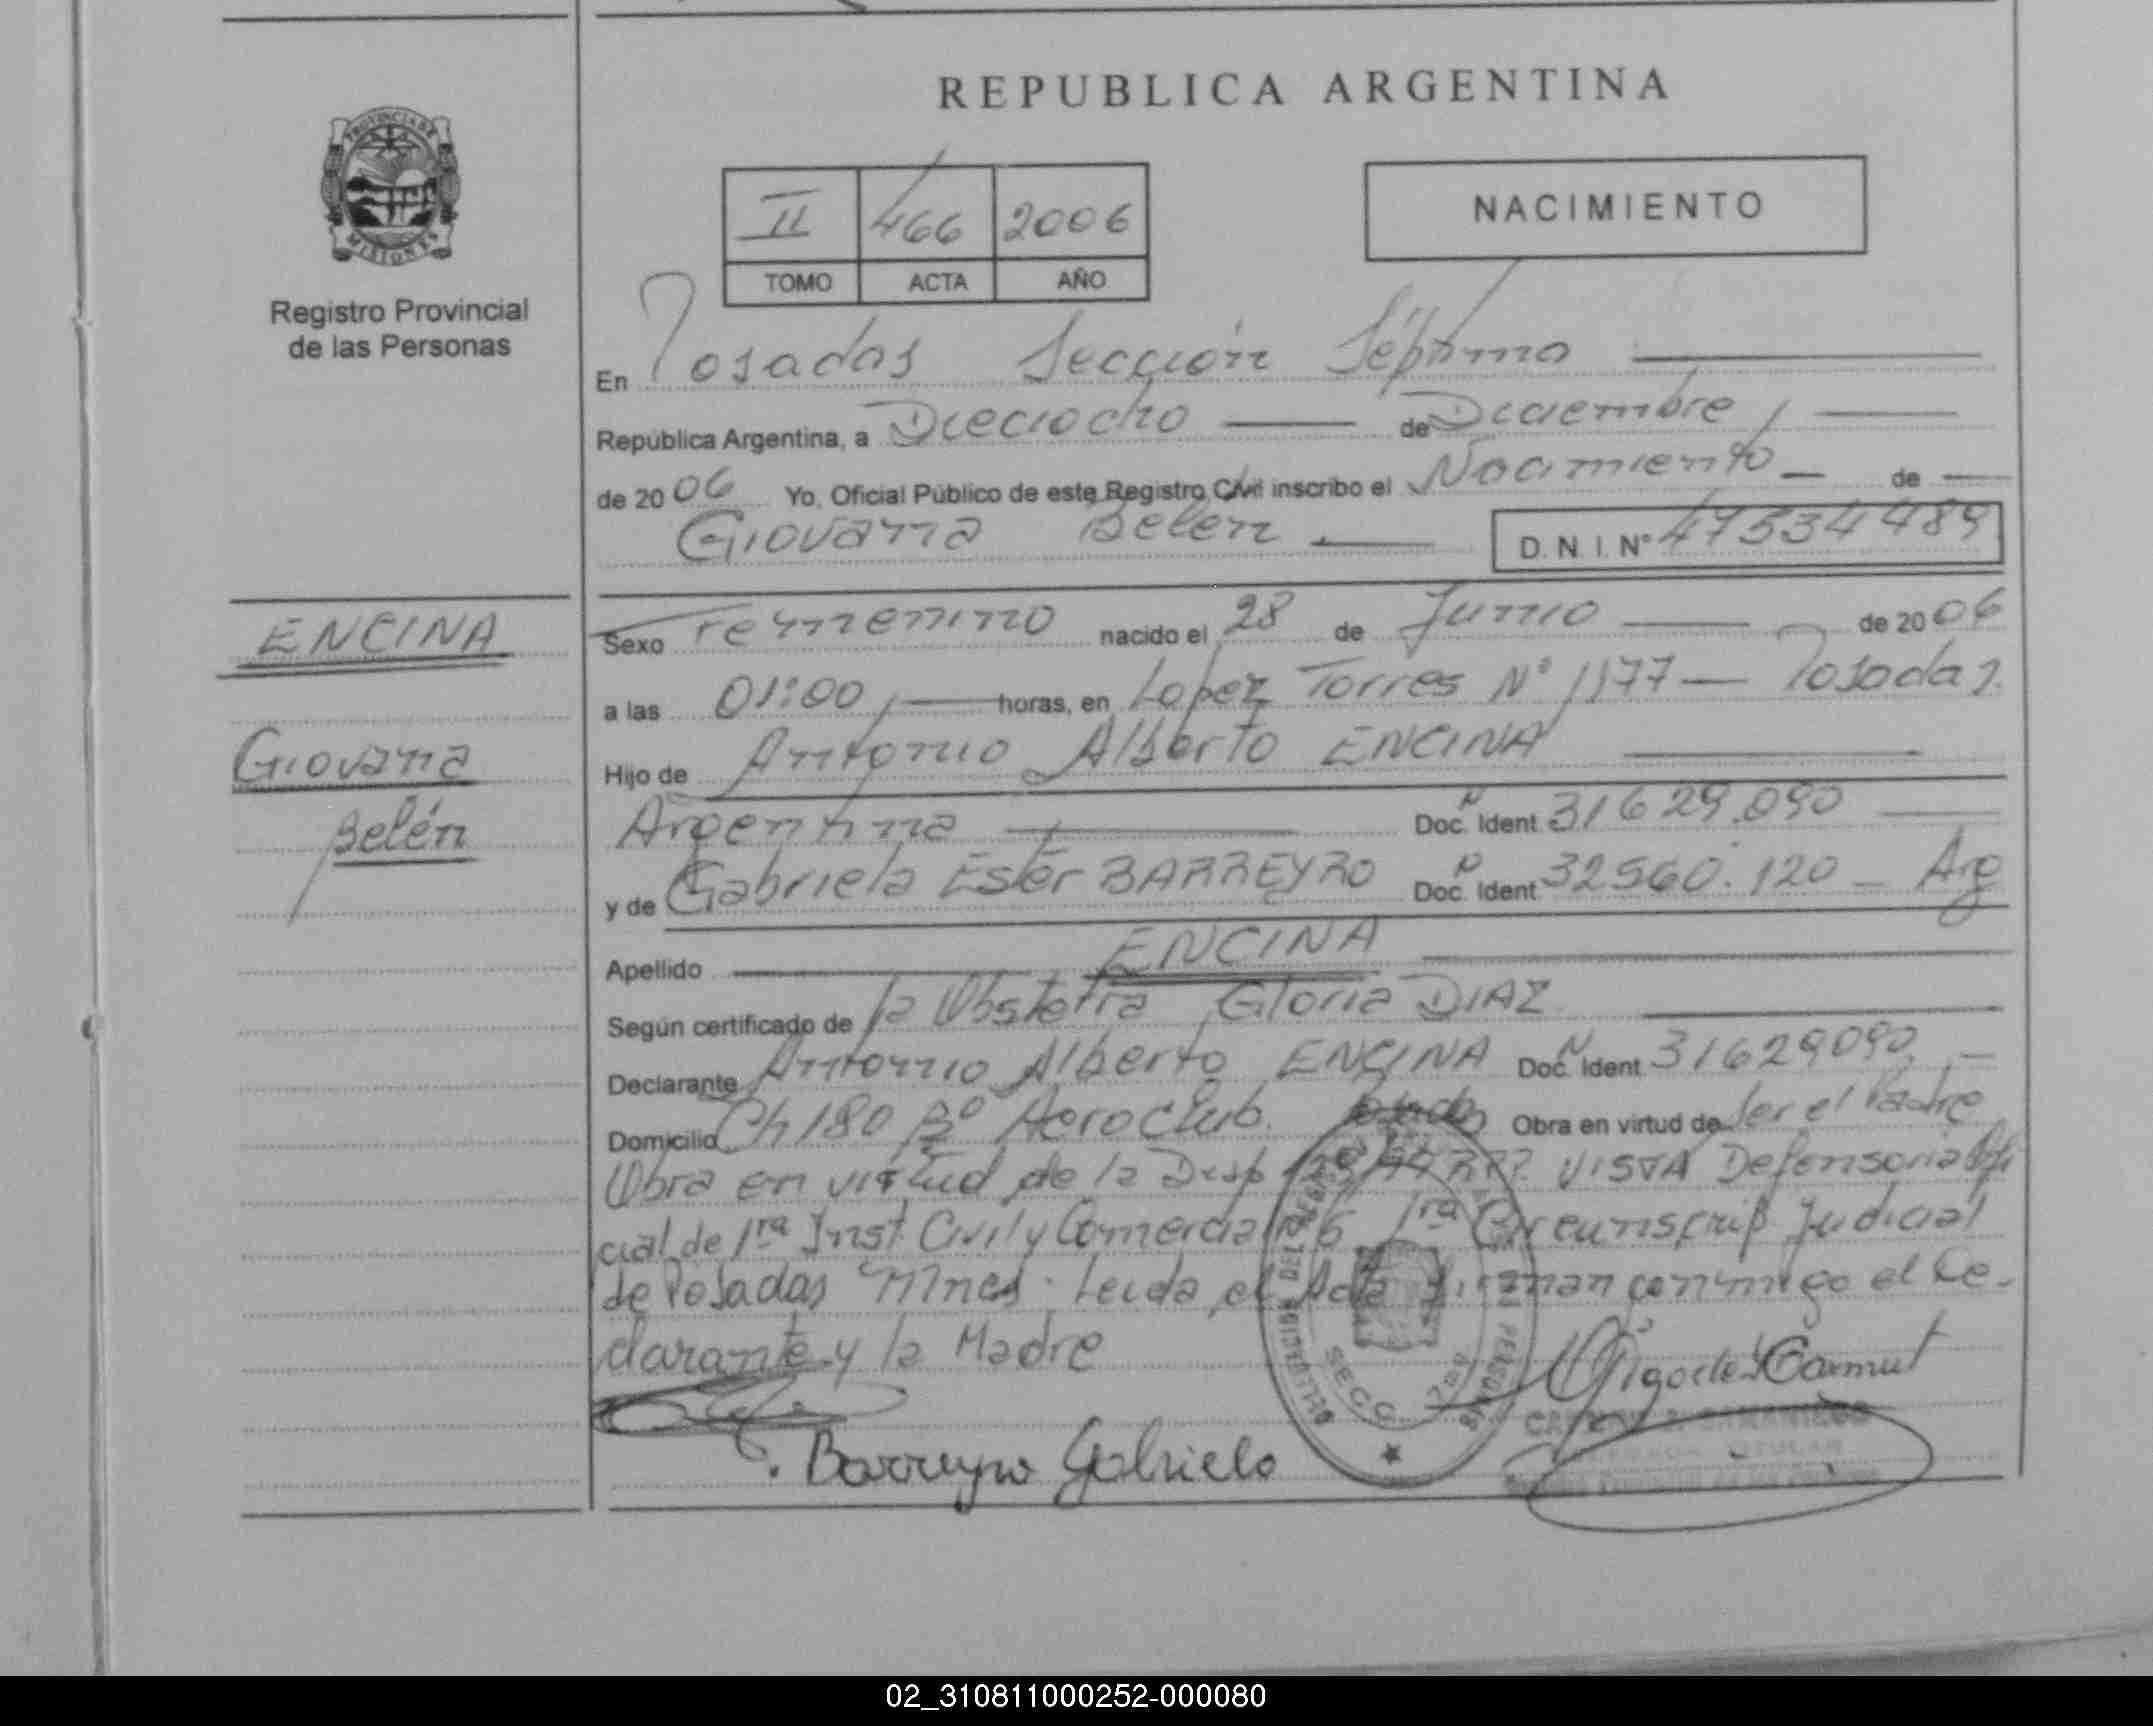 REPUBLICA ARGENTINA
PROVINCIA DE
MISIONES
Registro Provincial
de las Personas
II 466 2006
TOMO ACTA AÑO
NACIMIENTO
En Posadas Sección Séptima
República Argentina, a Dieciocho de Diciembre
de 2006 Yo, Oficial Público de este Registro Civil inscribo el Nacimiento de
Giovana Belen D. N. I. Nº 47534489
ENCINA
Giovana
Belén
Sexo Femenino nacido el 28 de Junio de 2006
a las 01:00 horas, en Lopez Torres Nº 1177 — Posadas.
Hijo de Antonio Alberto ENCINA
Argentina Doc. Ident 31629.090
y de Gabriela Ester BARREYRO Doc. Ident 32560.120 – Arg
Apellido ENCINA
Según certificado de la Obstetra Gloria DIAZ
Declarante Antonio Alberto ENCINA Doc. Ident 31629090
Domicilio Ch 180 Bº Aeroclub. Obra en virtud de Ser el Padre
Obra en virtud de la Disp VISTA Defensoria Ofi
cial de 1ra Inst. Civil y Comercial 1ra Circunscrip Judicial
de Posadas Mnes. Leida el Acta firman conmigo el De-
clarante y la Madre
SECC 7ma
Barreyro Gabriela
TITULAR
02_310811000252-000080